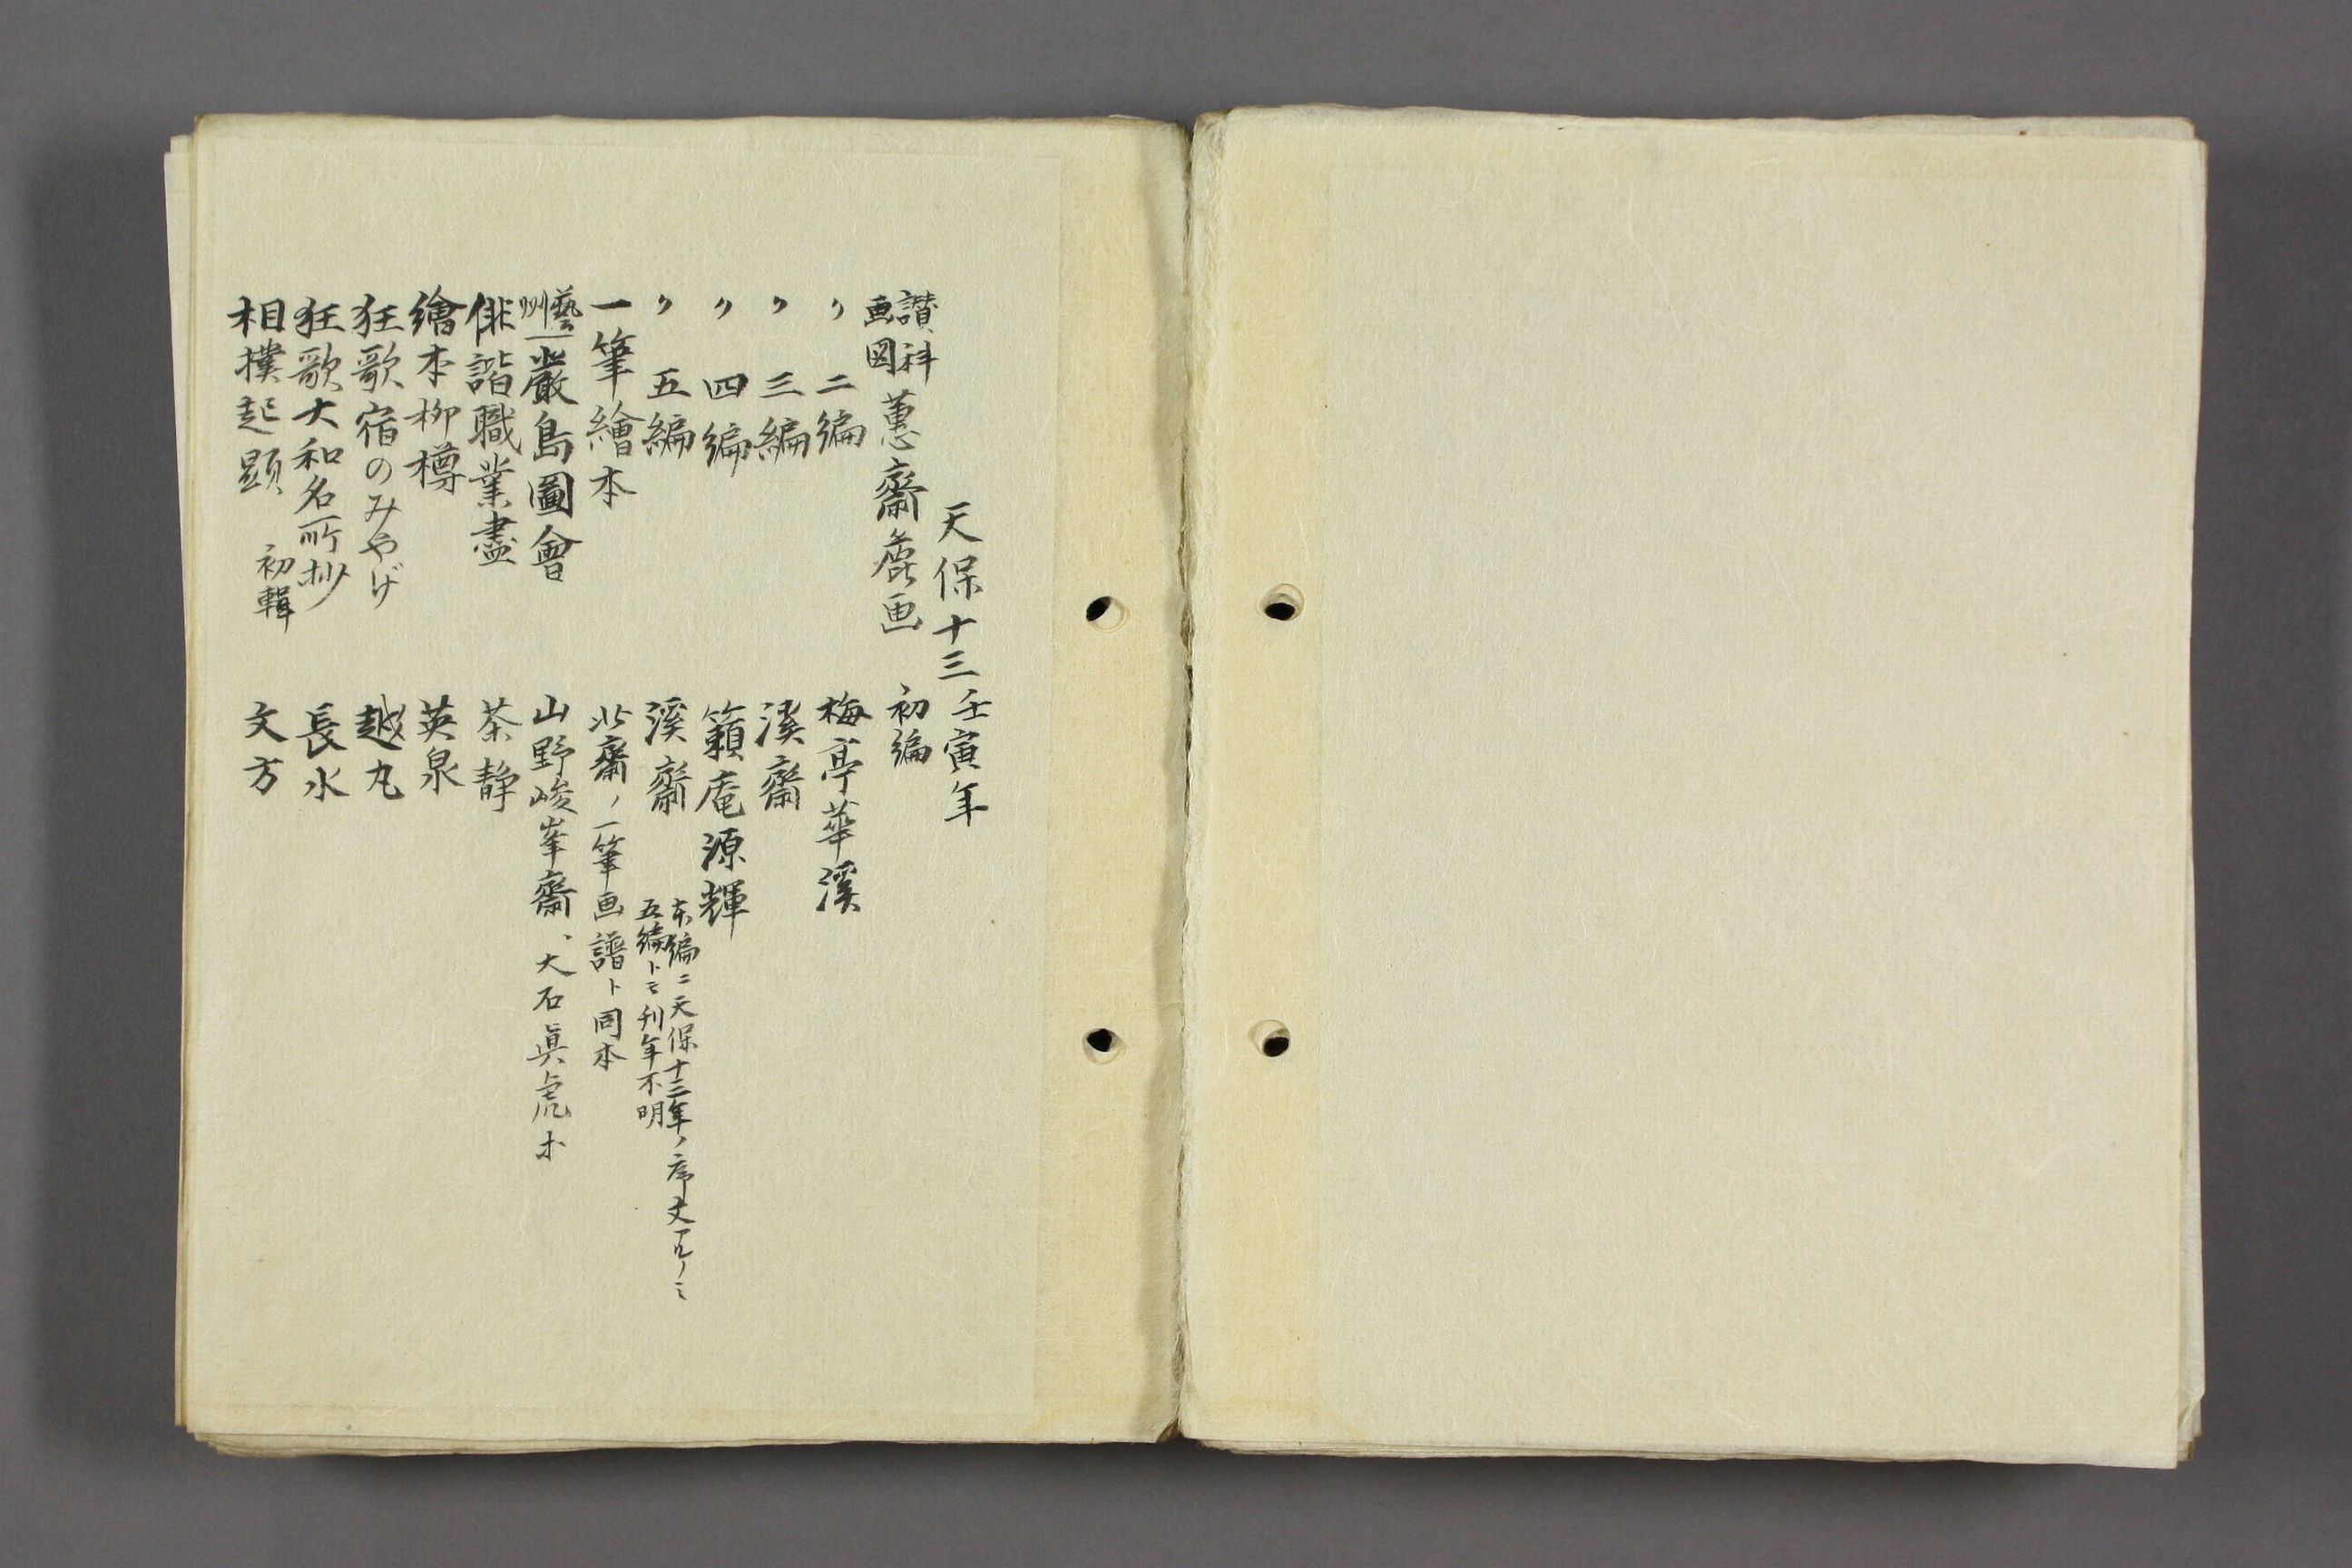 天保十三壬寅年
讃科画図 蕙齋麁画 初編
〃 二編 梅亭華溪
〃 三編 溪齋
〃 四編 籟庵源輝
〃 五編 溪齋 本編ニ天保十三年ノ序文アルノミ
五編トモ刊年不明
一筆繪本 北齋ノ一筆画譜ト同本
藝州嚴島圖會 山野峻峯齋、大石眞虎
俳諧職業盡 茶静
繪本柳樽 英泉
狂歌宿のみやげ 越丸
狂歌大和名所抄 長水
相撲起顕 初輯 文方